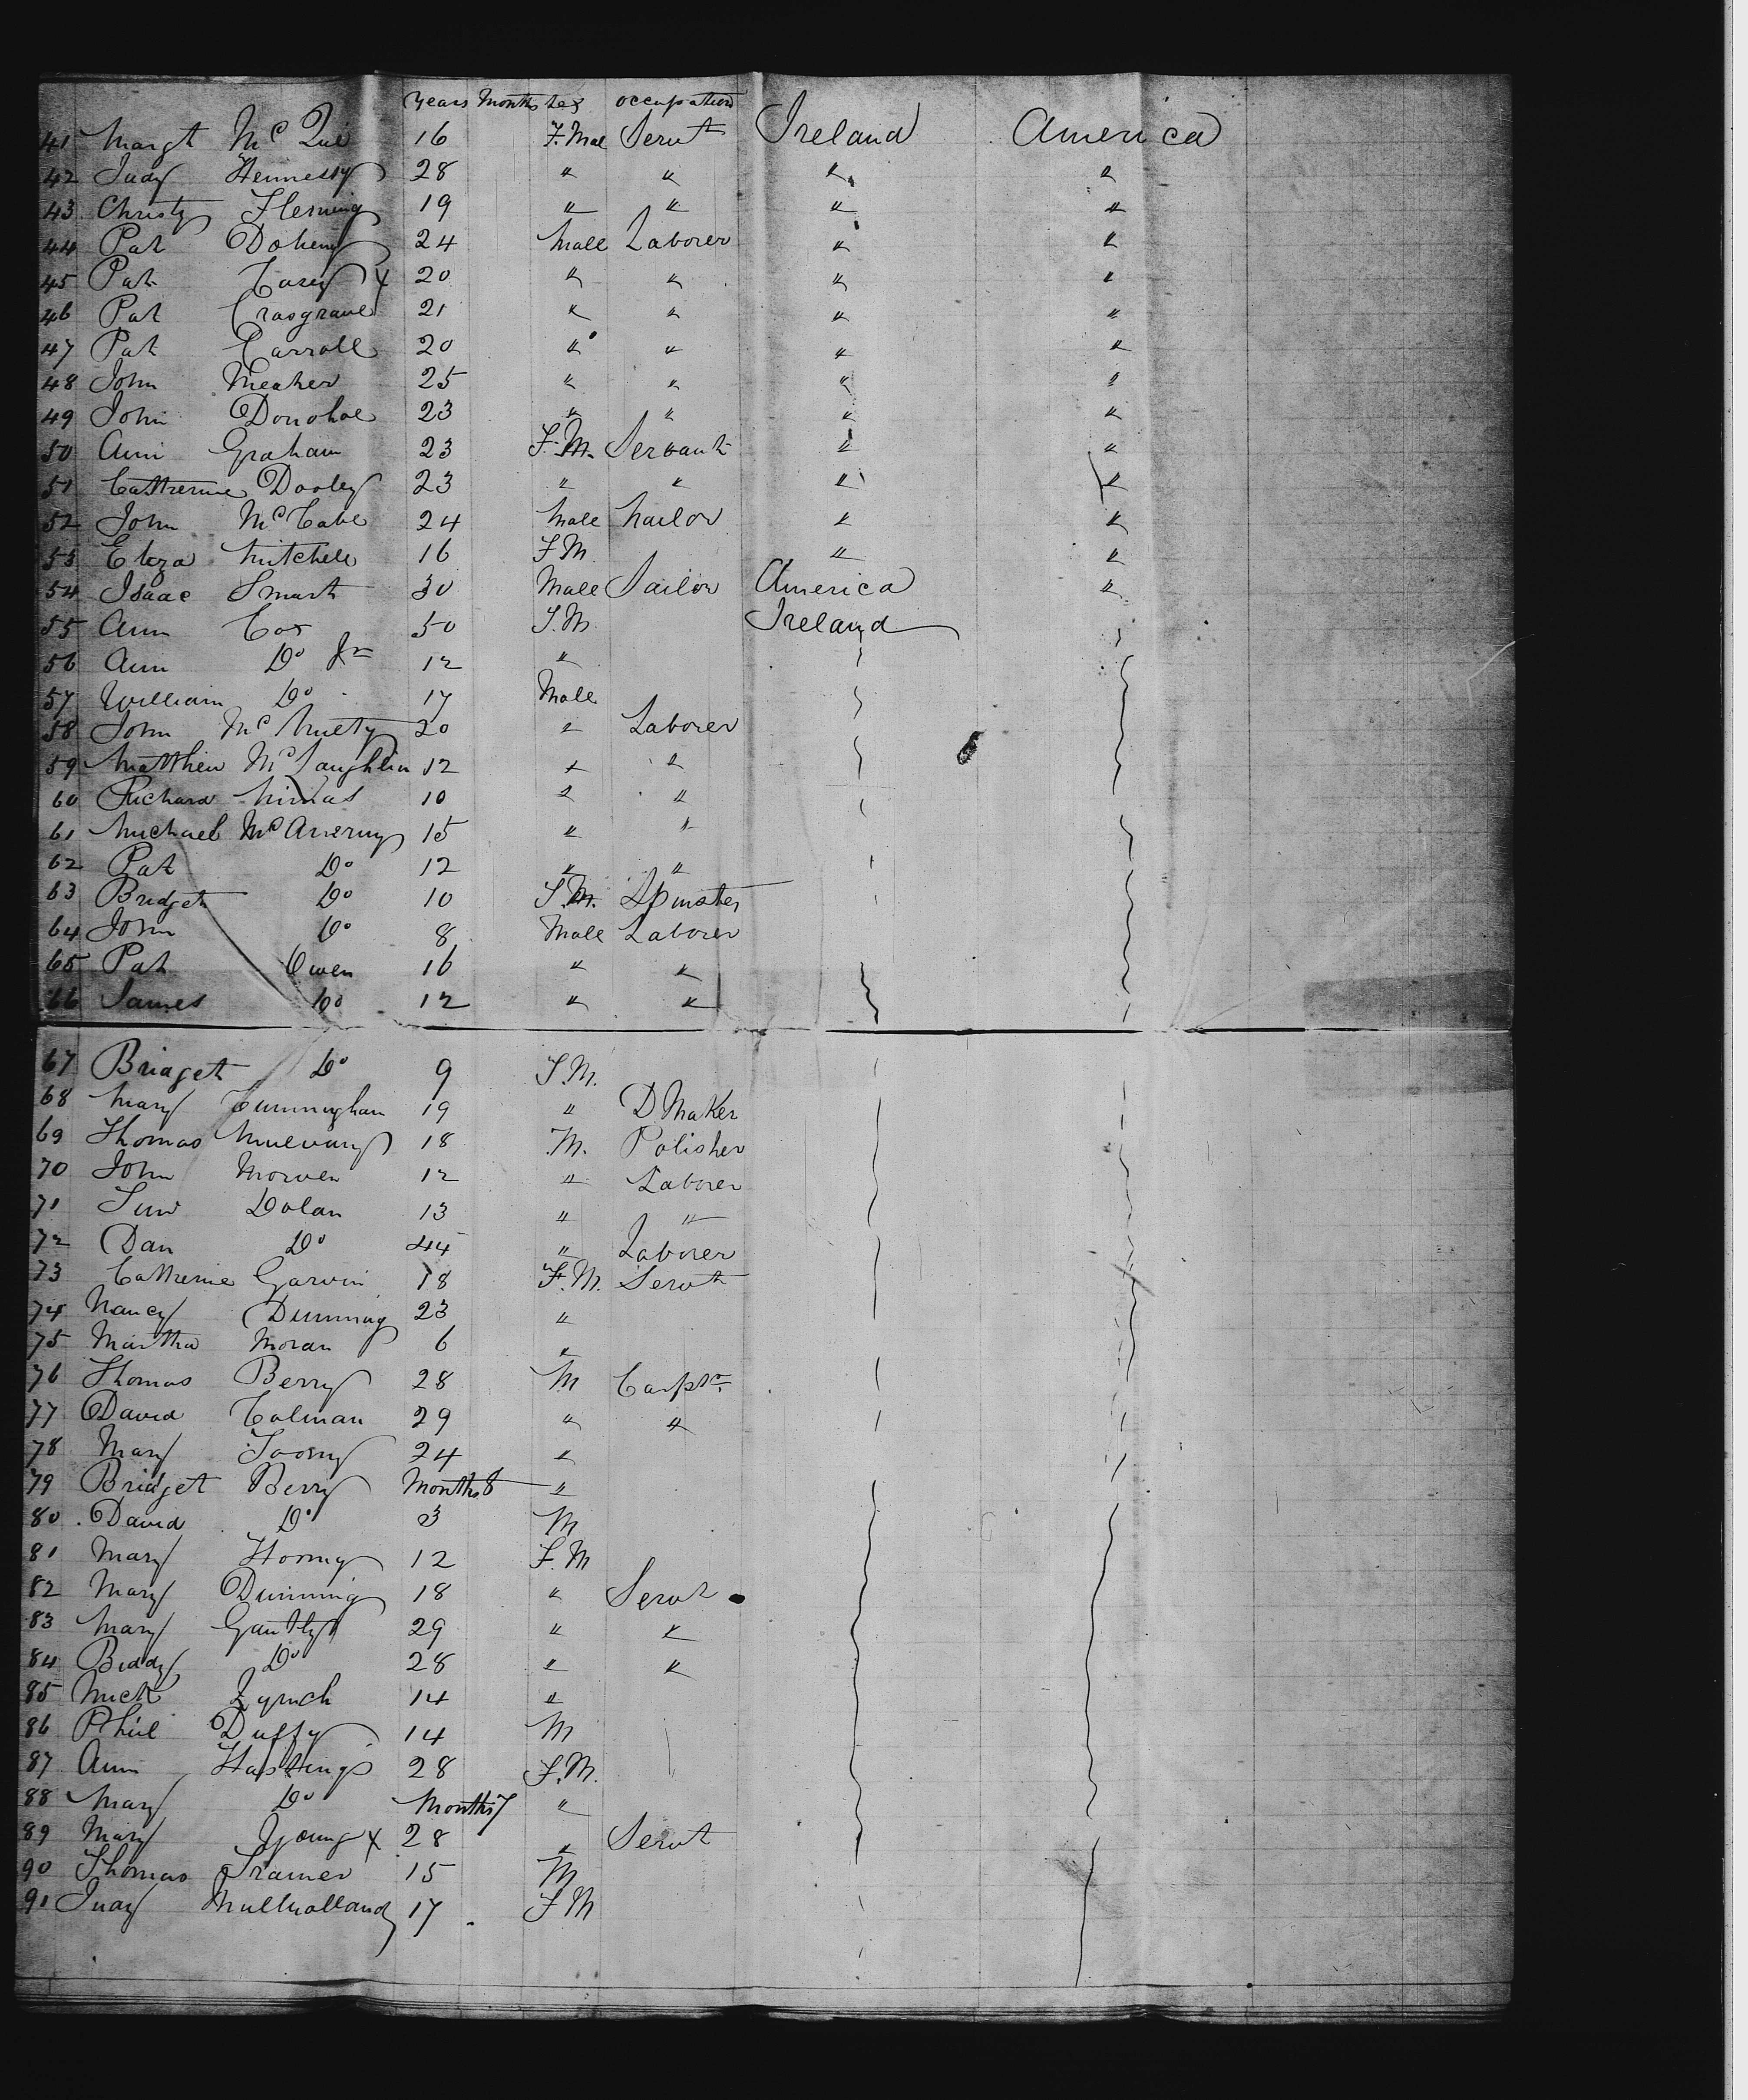 years Months Sex occupation
41 Margt McQue 16 F.Mal Servt Ireland America
42 Judy Hennessy 28 " " " "
43 Christy Fleming 19 " " " "
44 Pat Doheny 24 Male Laborer " "
45 Pat Casey X 20 " " " "
46 Pat Crasgrave 21 " " " "
47 Pat Carroll 20 " " " "
48 John Meaher 25 " " " "
49 John Donohoe 23 " " " "
50 Ann Graham 23 F.M. Servant " "
51 Catherine Dooley 23 " " " "
52 John McCabe 24 Male Nailor " "
53 Eliza Mitchell 16 F.M " "
54 Isaac Smart 30 Male Sailor America "
55 Ann Cox 50 F.M Ireland
56 Ann Do Jr 12 "
57 William Do 17 Male
58 John Mc 20 " Laborer
59 Matthew McLaughlin 12 " "
60 Richard 10 " "
61 Michael McAnerny 15 " "
62 Pat Do 12 " "
63 Bridget Do 10 F.M. Spinster
64 John Do 8 Male Laborer
65 Pat Owen 16 " "
66 James Do 12 " "
67 Bridget Do 9 F.M.
68 Mary Cunningham 19 " D Maker
69 Thomas Mulvany 18 M. Polisher
70 John Morven 12 " Laborer
71 Dolan 13 " "
72 Dan Do 44 " Laborer
73 Catherine Garvin 18 F.M. Servt
74 Nancy Dunning 23 "
75 Martha Moran 6 "
76 Thomas Berry 28 M Carptr
77 David Colman 29 " "
78 Mary 24 "
79 Bridget Berry Months 8 "
80 David Do 3 M
81 Mary 12 F.M
82 Mary Dunning 18 " Servt
83 Mary Gantly 29 " "
84 Biddy Do 28 " "
85 Mick Lynch 14 "
86 Phil Duffy 14 M
87 Ann Hastings 28 F.M.
88 Mary Do Months 7 "
89 Mary Young X 28 " Servt
90 Thomas 15 M
91 Judy Mulholland 17 F M